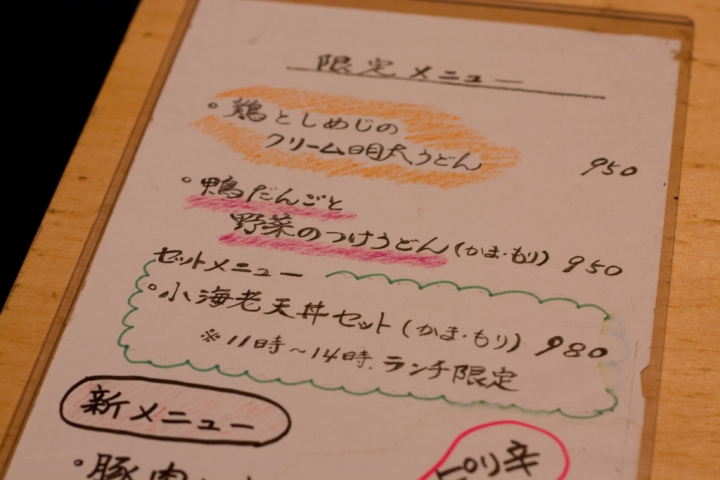 限定メニュー
・鶏としめじの
クリーム明太うどん 950
・鴨だんごと
野菜のつけうどん(かま・もり) 950
セットメニュー
・小海老天丼セット(かま・もり) 980
※11時〜14時.ランチ限定
新メニュー
・豚肉
ピリ辛